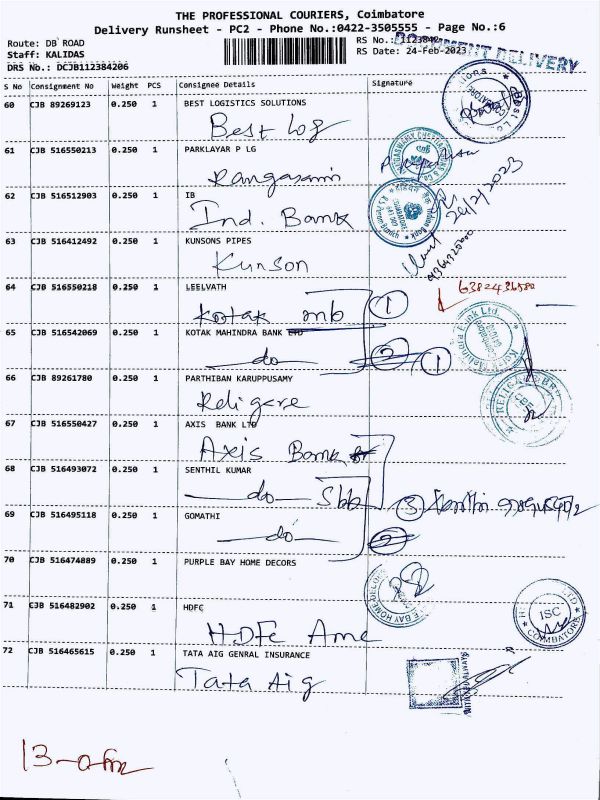 THE PROFESSIONAL COURIERS, Coimbatore
Delivery Runsheet - PC2 - Phone No.:0422-3505555 - Page No.:6
Route: DB ROAD
Staff: KALIDAS
DRS No.: DCJB112384206
RS No.:
RS Date: 24-Feb-2023
DELIVERY
S No Consignment No Weight PCS Consignee Details Signature
60 CJB 89269123 0.250 1 BEST LOGISTICS SOLUTIONS
Best Log
61 CJB 516550213 0.250 1 PARKLAYAR P LG
Rangasami
62 CJB 516512903 0.250 1 IB
Ind. Bank
24/2/2023
63 CJB 516412492 0.250 1 KUNSONS PIPES
Kunson
64 CJB 516550218 0.250 1 LEELVATH
6382436580
Kotak mb 1
65 CJB 516542069 0.250 1 KOTAK MAHINDRA BANK LTD
do 2 1
66 CJB 89261780 0.250 1 PARTHIBAN KARUPPUSAMY
Religare
67 CJB 516550427 0.250 1 AXIS BANK LTD
Axis Bank
68 CJB 516493072 0.250 1 SENTHIL KUMAR
do Sbb 3
69 CJB 516495118 0.250 1 GOMATHI
do 2
70 CJB 516474889 0.250 1 PURPLE BAY HOME DECORS
71 CJB 516482902 0.250 1 HDFC
HDFC Amc
ISC
COIMBATORE
72 CJB 516465615 0.250 1 TATA AIG GENRAL INSURANCE
Tata Aig